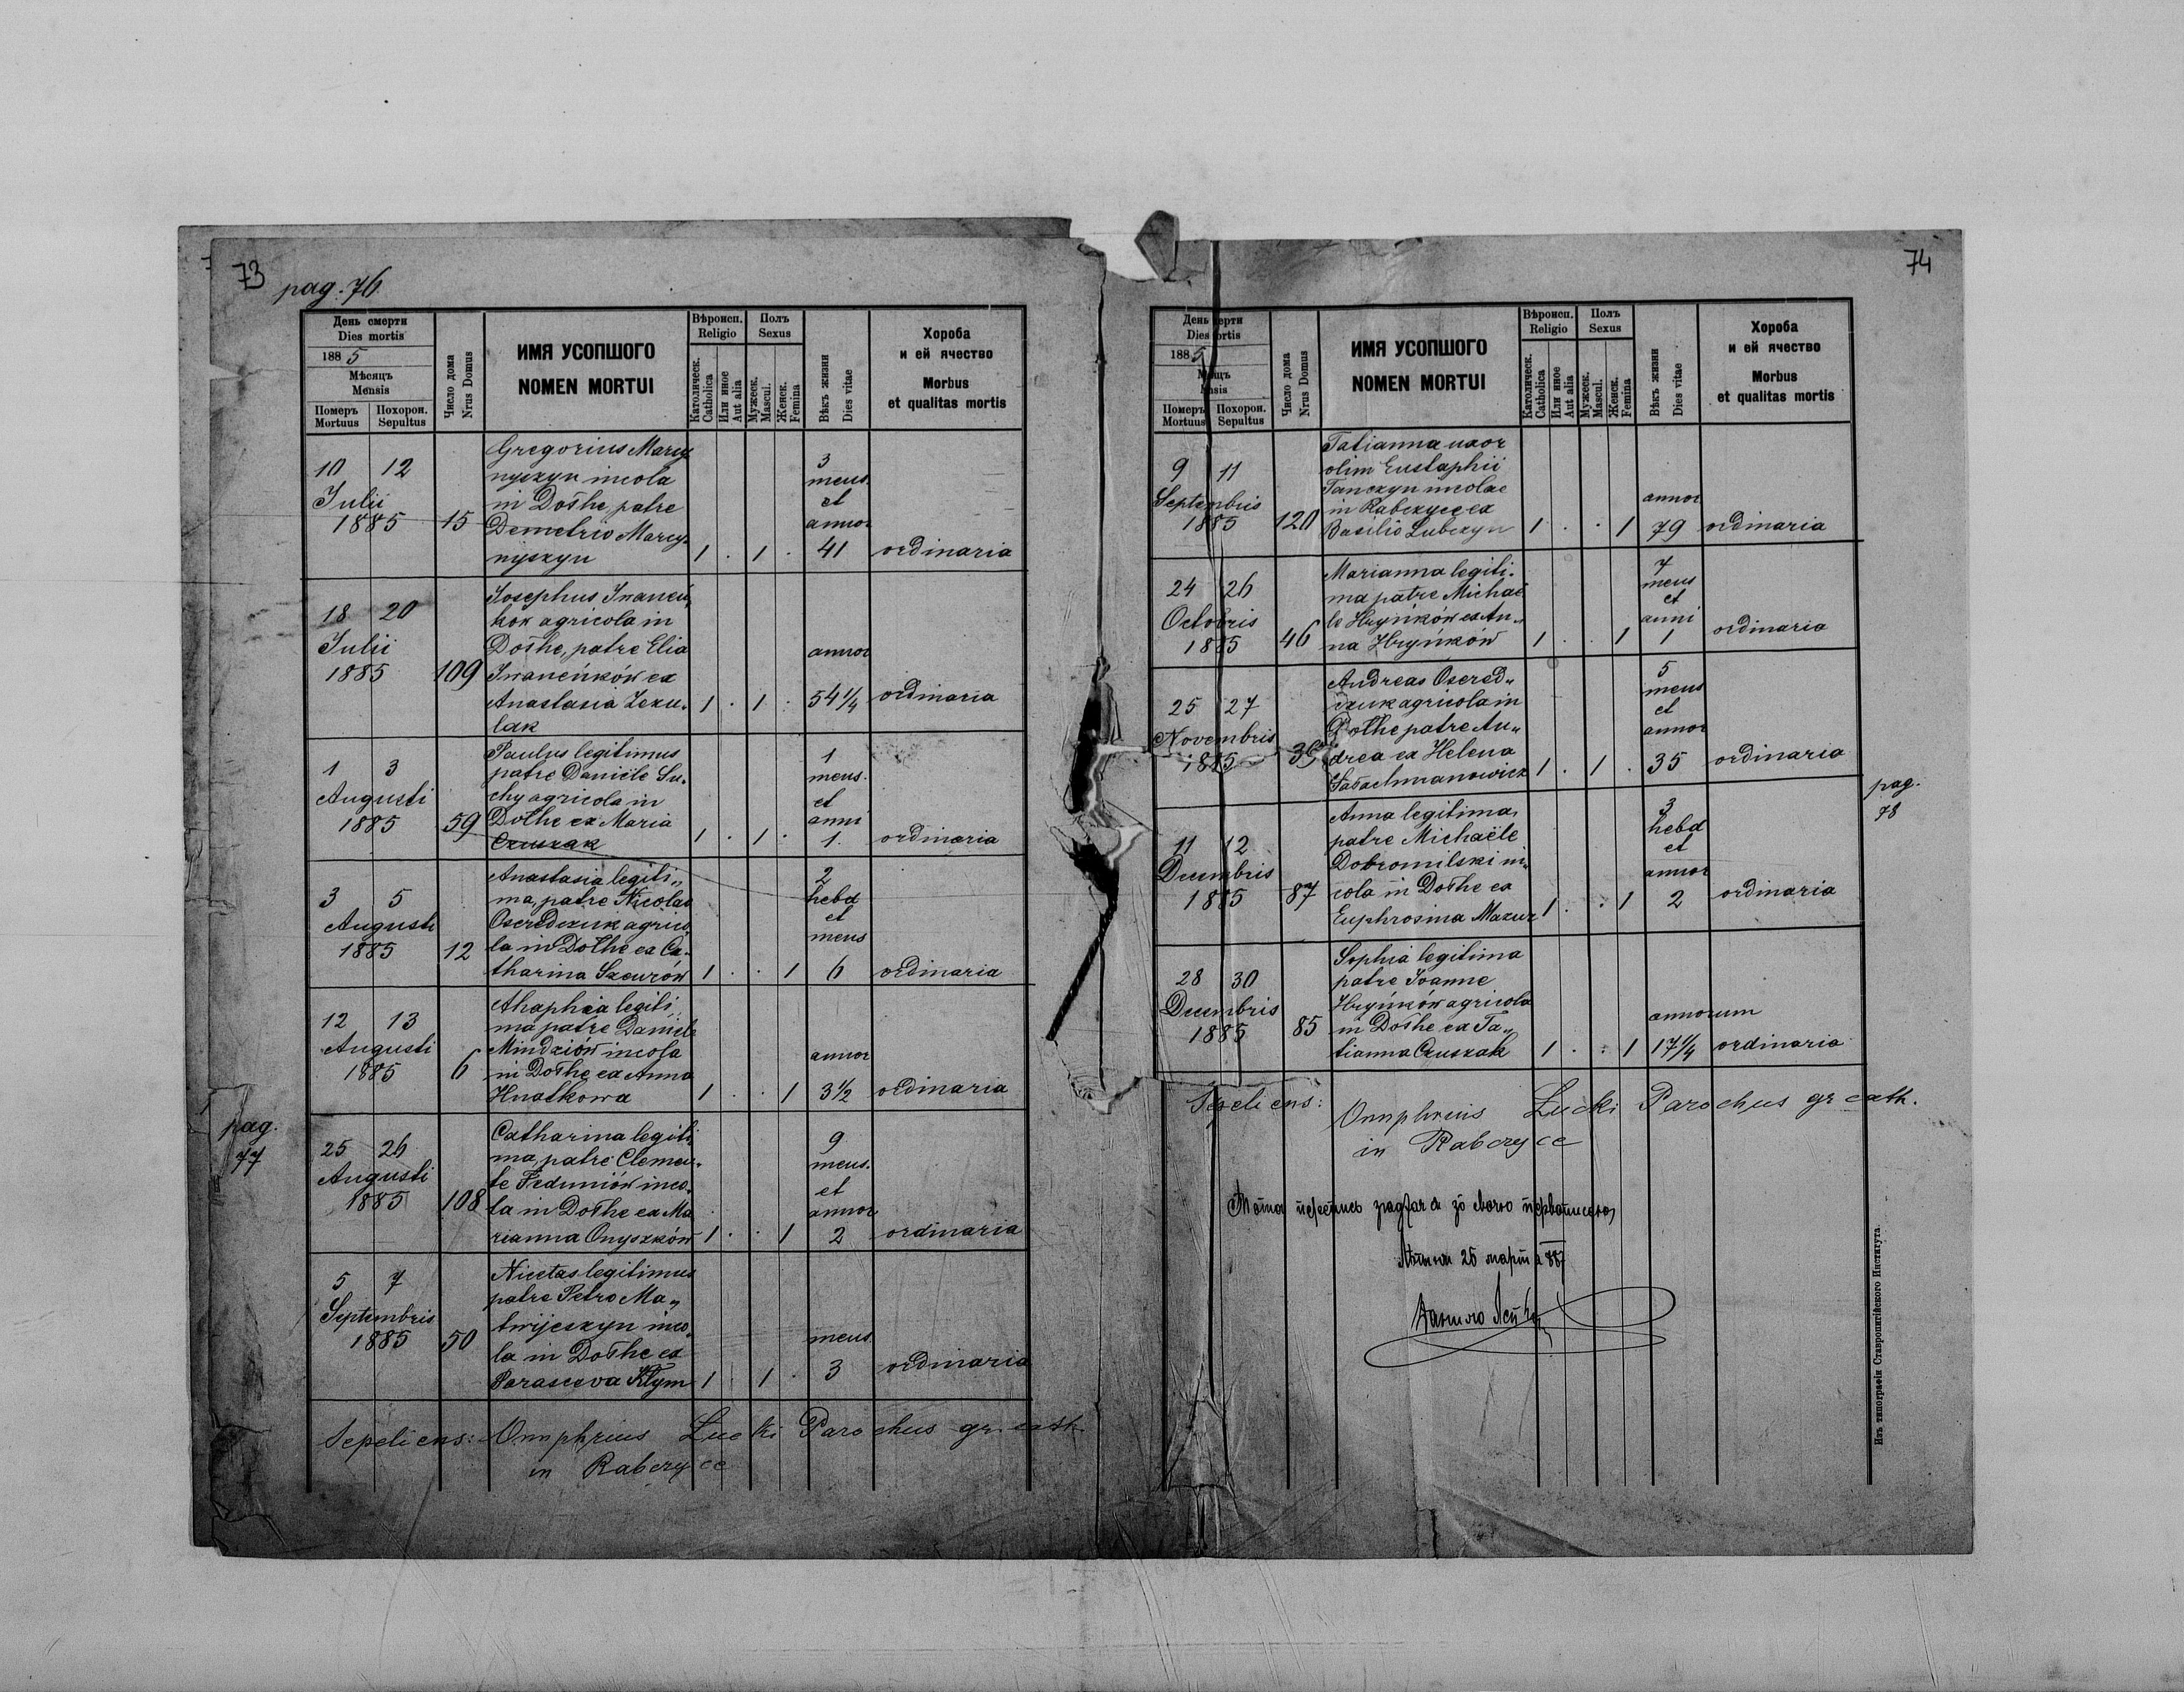 73
pag. 76.
День смерти
Dies mortis
1885
Мѣсяцъ
Mensis
Померъ
Mortuus
Похорон.
Sepultus
Число дома
Nrus Domus
ИМЯ УСОПШОГО
NOMEN MORTUI
Вѣроисп.
Religio
Католическ.
Catholica
Или иное
Aut alia
Полъ
Sexus
Мужеск.
Mascul.
Женск.
Femina
Вѣкъ жизни
Dies vitae
Хороба
и ей ячество
Morbus
et qualitas mortis
10 12
Julii
1885 15
Gregorius Marcy
nyszyn incola
in Dołhe, patre
Demetrio Marcy„
nyszyn
1 . 1 .
3
mens.
et
annor
41
ordinaria
18 20
Julii
1885 109
Josephus Iwaneń„
kow agricola in
Dołhe, patre Elia
Iwaneńków ex
Anastasia Zexu„
lak
1 . 1 .
annor
54 1/4
ordinaria
1 3
Augusti
1885 59
Paulus legitimus
patre Daniële Su„
chy agricola in
Dołhe ex Maria
Czuszak
1 . 1 .
1
mens.
et
anni
1.
ordinaria
3 5
Augusti
1885 12
Anastasia legiti„
ma, patre Nicolao
Oseredczuk agrico„
la in Dołhe ex Ca„
tharina Szczurów
1 . . 1
2
hebd
et
mens
6
ordinaria
12 13
Augusti
1885 6
Ahaphia legiti„
ma patre Daniele
Mindziów incola
in Dołhe ex Anna
Hnatkowa
1 . . 1
annor
3 1/2
ordinaria
pag.
77
25 26
Augusti
1885 108
Catharina legiti
ma, patre Clemen„
te Feduniów inco„
la in Dołhe ex Ma
rianna Onyszków
1 . . 1
9
mens.
et
annor
2
ordinaria
5 7
Septembris
1885 50
Nicetas legitimus
patre Petro Ma„
twijeszyn inco„
la in Dołhe ex
Parasceva Kłym
1 . 1 .
mens.
3
ordinaria
Sepeliens: Onuphrius Łucki Parochus gr. cath
in Rabczyce
74
День смерти
Dies mortis
1885
Мѣсяцъ
Mensis
Померъ
Mortuus
Похорон.
Sepultus
Число дома
Nrus Domus
ИМЯ УСОПШОГО
NOMEN MORTUI
Вѣроисп.
Religio
Католическ.
Catholica
Или иное
Aut alia
Полъ
Sexus
Мужеск.
Mascul.
Женск.
Femina
Вѣкъ жизни
Dies vitae
Хороба
и ей ячество
Morbus
et qualitas mortis
9 11
Septembris
1885 120
Tatianna uxor
olim Eustaphii
Tanczyn incolae
in Rabczyce ex
Basilio Lubczyn
1 . . 1
annor
79
ordinaria
24 26
Octobris
1885 46
Marianna legiti„
ma patre Michaë
le Hryńków ex An„
na Hryńków
1 . . 1
7
mens
et
anni
1
ordinaria
25 27
Novembris
1885
Andreas Osered„
czuk agricola in
Dołhe patre An„
drea ex Helena
1 . 1 .
5
mens
et
annor
35
ordinaria
pag.
78
11 12
Decembris
1885 87
Anna legitima,
patre Michaële
Dobromilski in„
cola in Dołhe ex
Euphrosina Mazur
1 . . 1
3
hebd
et
annor
2
ordinaria
28 30
Decembris
1885 85
Sophia legitima
patre Joanne
Hryńków agricola
in Dołhe ex Ta„
tianna Czuszak
1 . . 1
annorum
17 1/4
ordinaria
Sepeliens: Onuphrius Łucki Parochus gr cath.
in Rabczyce
25 марта 887
Изъ типографіи Ставропигійского Института